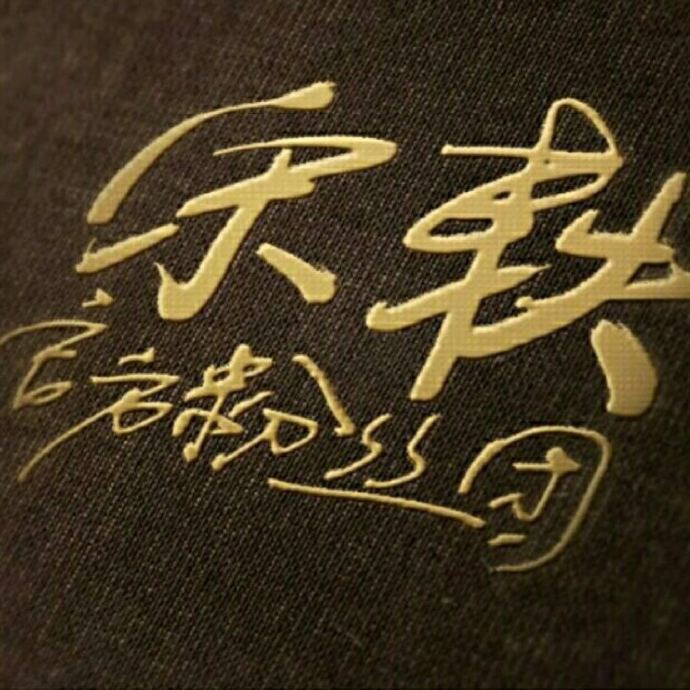 宋轶
官方粉丝团